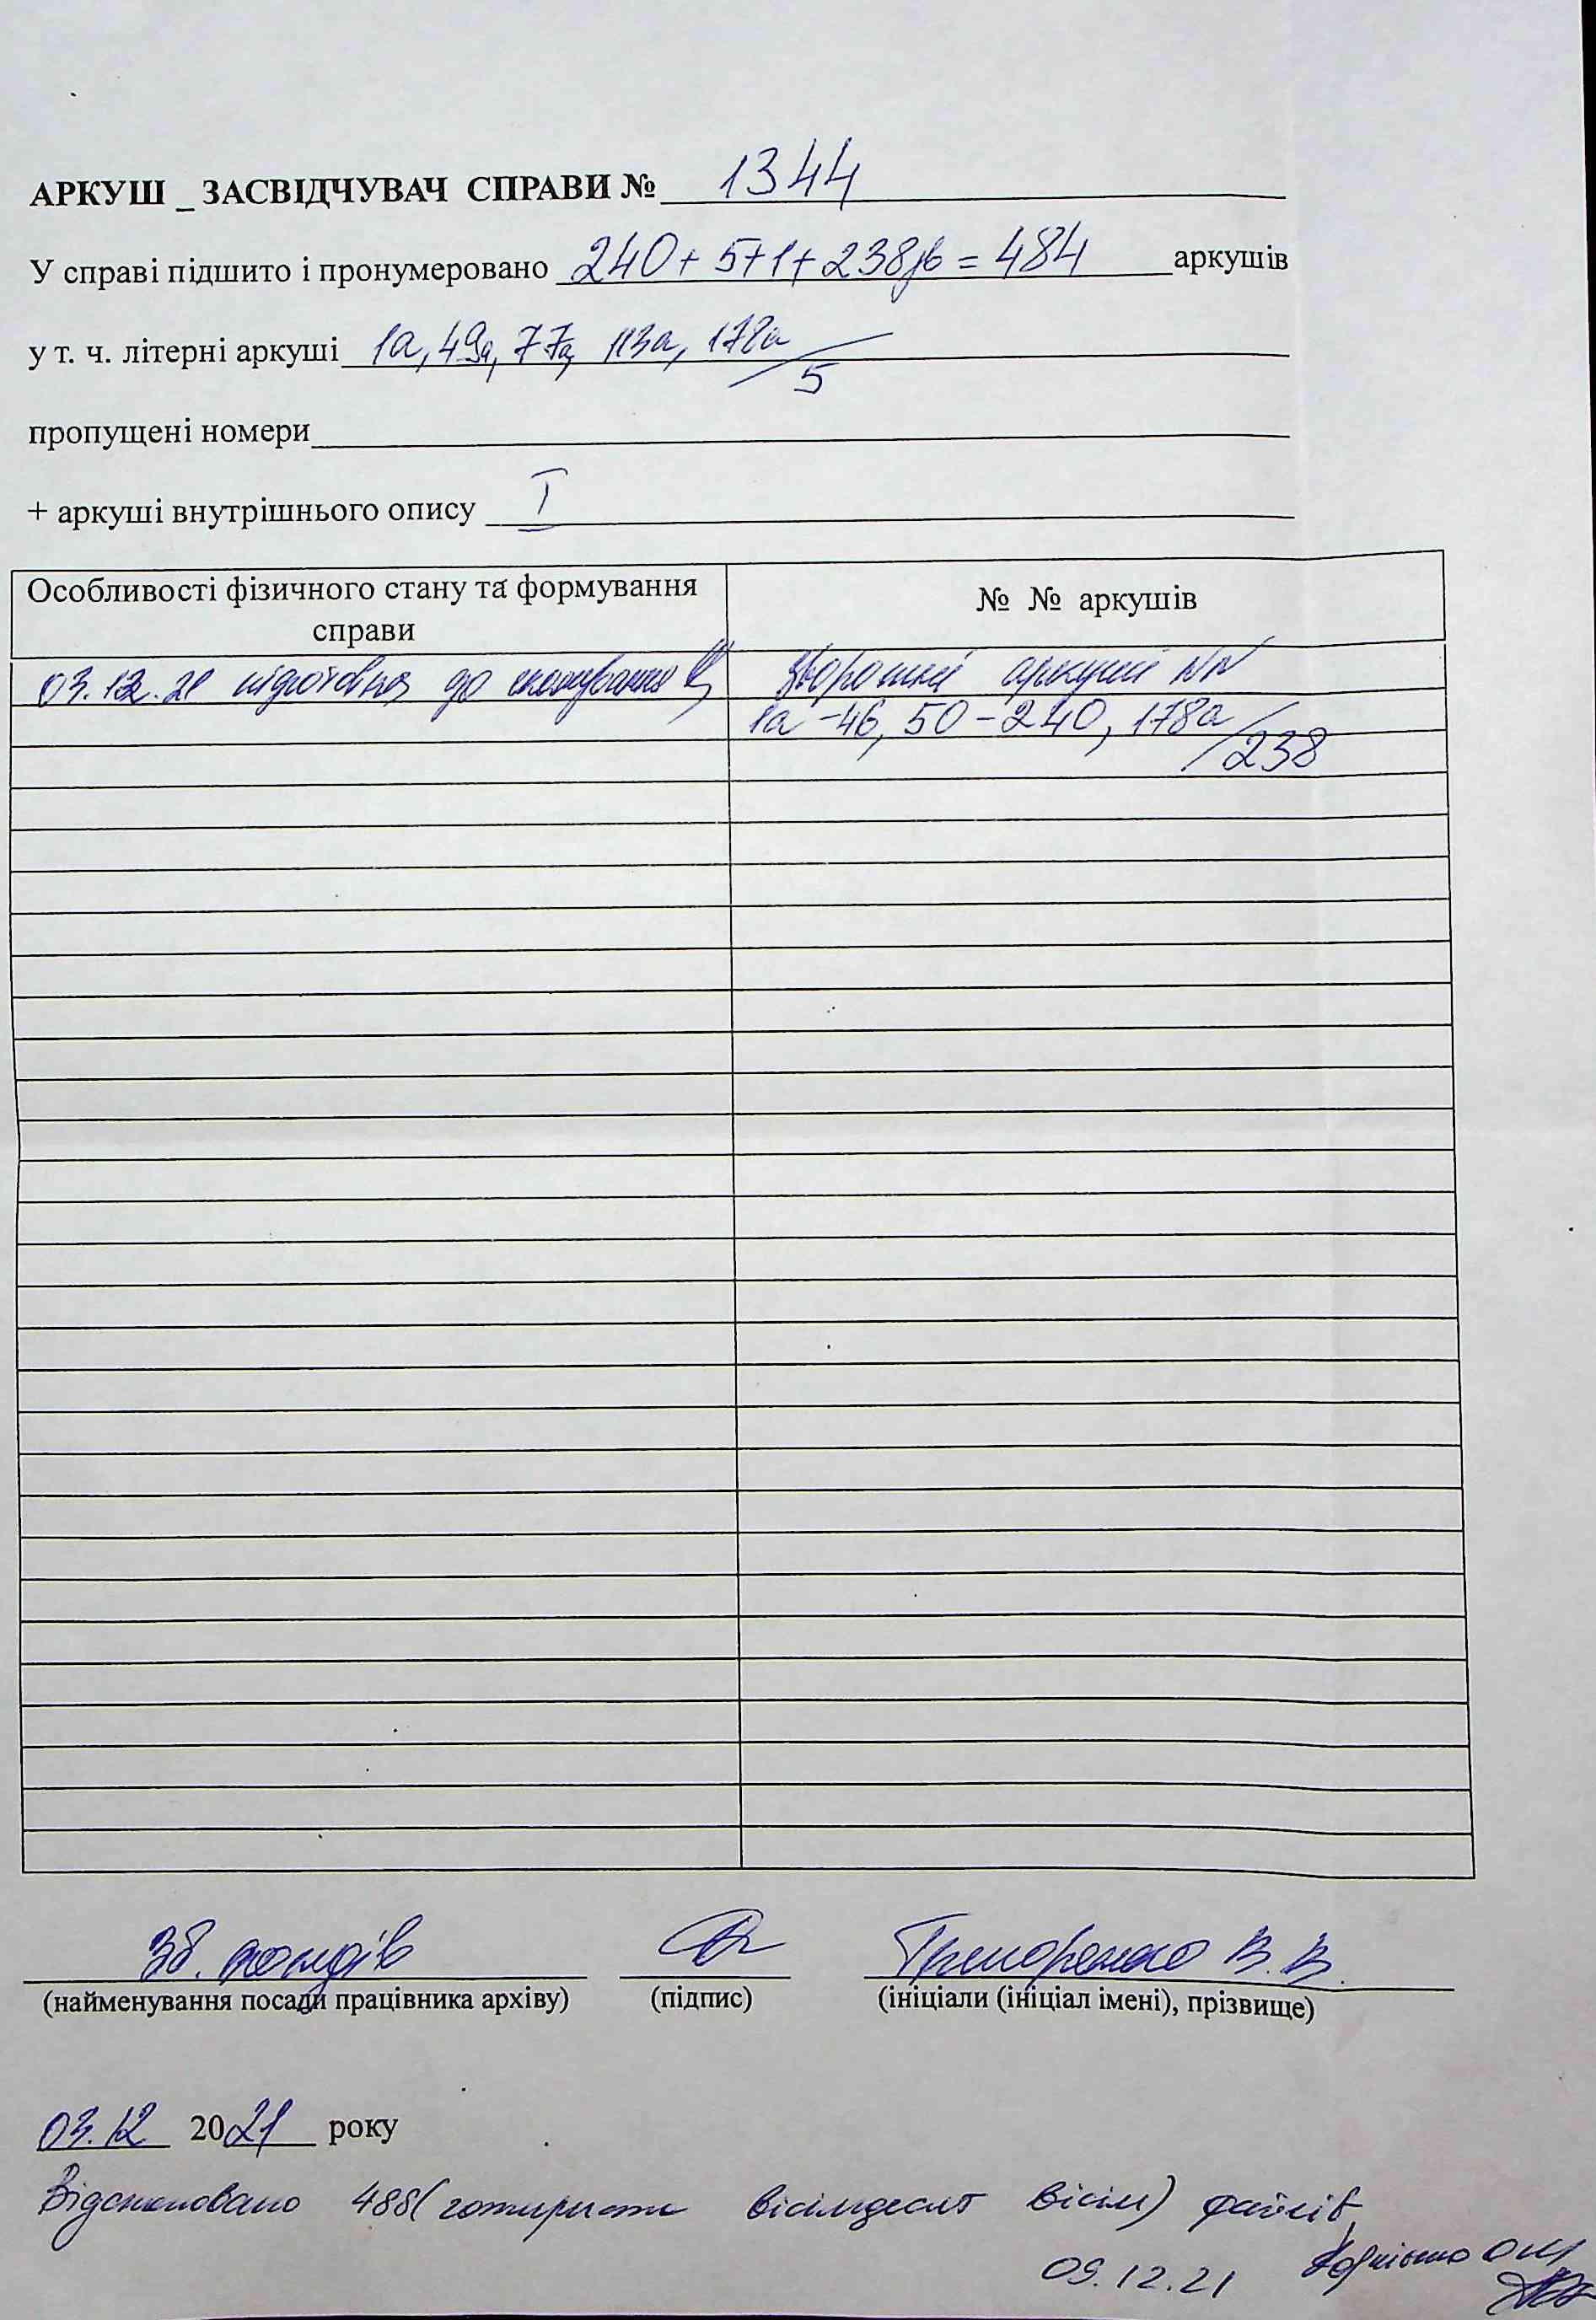 АРКУШ _ ЗАСВІДЧУВАЧ СПРАВИ № 1344
У справі підшито і пронумеровано 240+5+1+238зв=484 аркушів
у т. ч. літерні аркуші 1а, 49а, 77а, 113а, 178а /5
пропущені номери
+ аркуші внутрішнього опису I
Особливості фізичного стану та формування справи
№ № аркушів
03.12.21 підготовка до сканування
Зворотній аркушй NN
1а-46, 50-240, 178а /238
зб. фондів
Тимофеенко В.В.
(найменування посади працівника архіву) (підпис) (ініціали (ініціал імені), прізвище)
03.12 2021 року
Відскановано 488 (чотириста вісімдесят вісім) файлів
09.12.21